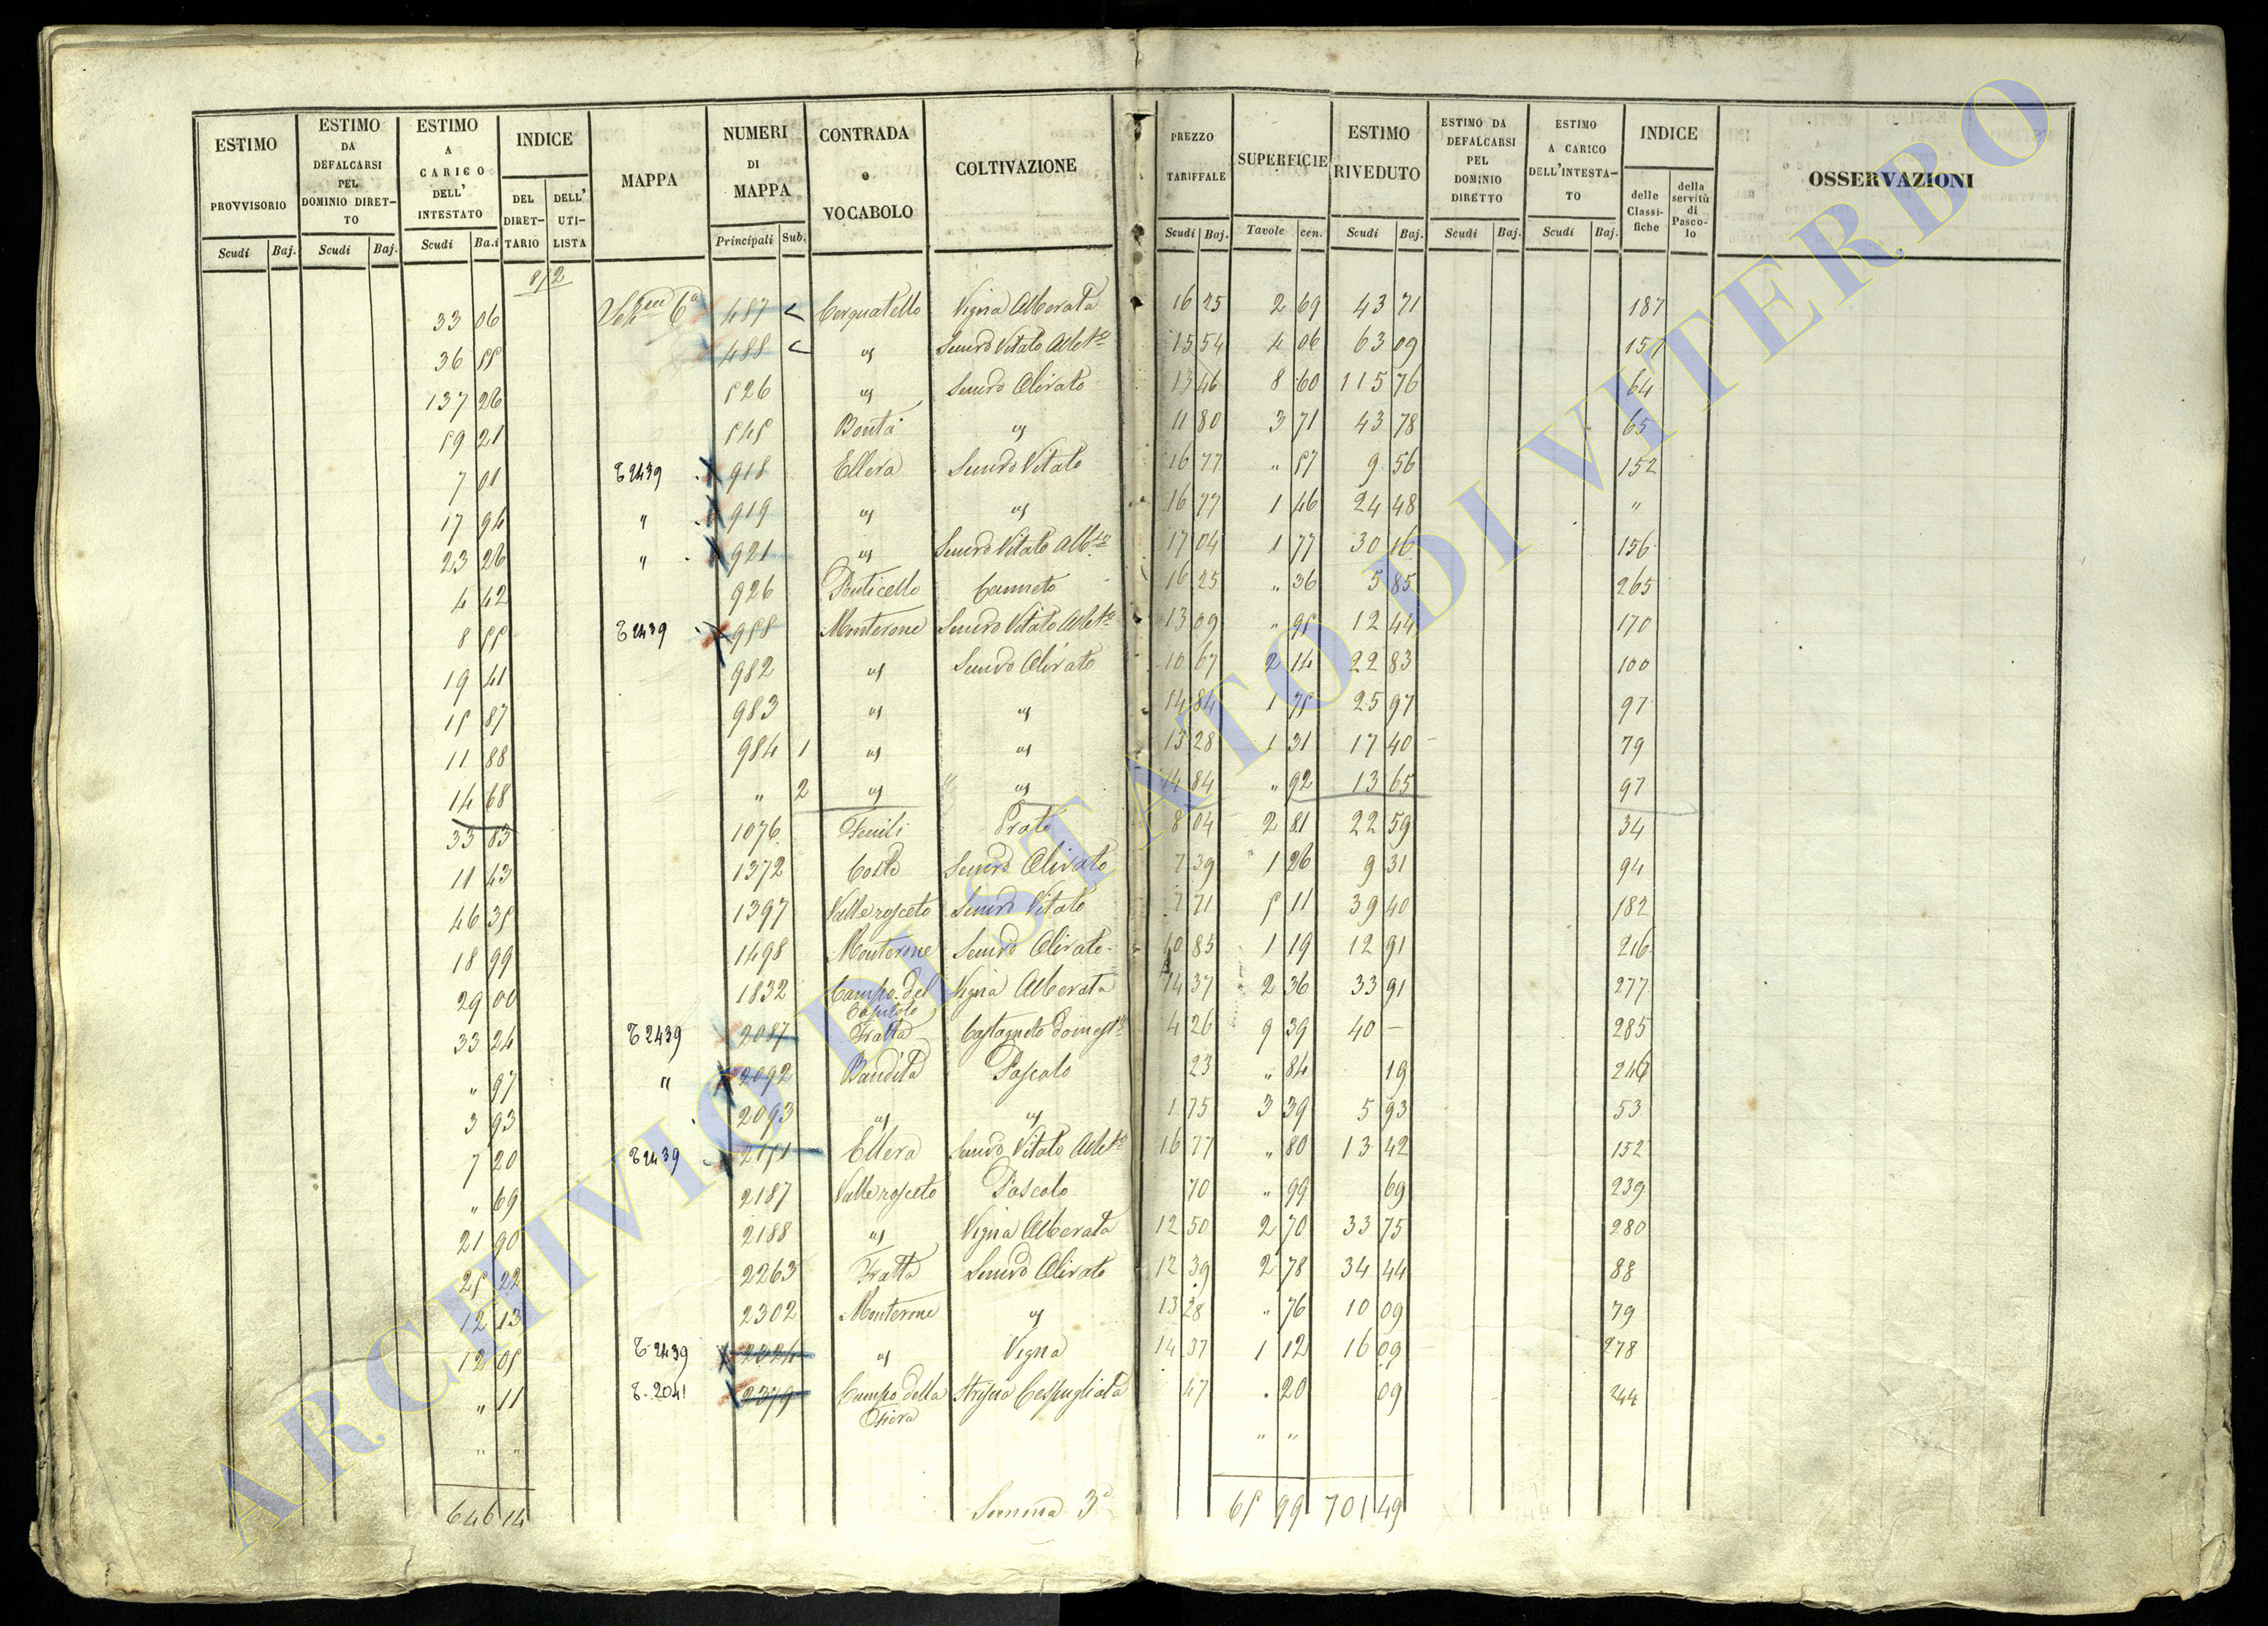 ESTIMO PROVVISORIO | ESTIMO DA DEFALCARSI PEL DOMINIO DIRETTO | ESTIMO A CARICO DELL' INTESTATO | INDICE DEL DIRETTARIO | DELL' UTILISTA | MAPPA | NUMERI DI MAPPA | CONTRADA o VOCABOLO | COLTIVAZIONE | PREZZO TARIFFALE | SUPERFICIE | ESTIMO RIVEDUTO | ESTIMO DA DEFALCARSI PEL DOMINIO DIRETTO | ESTIMO A CARICO DELL'INTESTATO | INDICE delle Classifiche | della servitù di Pascolo | OSSERVAZIONI
Scudi | Baj. | Scudi | Baj. | Scudi | Ba.i | Principali | Sub. | Scudi | Baj. | Tavole | cen. | Scudi | Baj. | Scudi | Baj. | Scudi | Baj.
8/2
33 06 | 6a | 487 | Cerquatello | Vigna Alberata | 16 25 | 2 69 | 43 71 | 187
36 55 | 488 | " | Semivo Vitato Albto | 15 54 | 4 06 | 63 09 | 157
137 26 | 526 | " | Semivo Olivato | 13 46 | 8 60 | 115 76 | 64
59 21 | 545 | Bontà | " | 11 80 | 3 71 | 43 78 | 65
7 01 | T 2439 | 918 | Ellera | Semivo Vitato | 16 77 | " 57 | 9 56 | 152
17 94 | " | 919 | " | " | 16 77 | 1 46 | 24 48 | "
23 26 | " | 921 | " | Semivo Vitato Albto | 17 04 | 1 77 | 30 16 | 156
4 42 | 926 | Ponticello | Canneto | 16 25 | " 36 | 5 85 | 265
8 55 | T 2439 | 958 | Monterone | Semivo Vitato Albto | 13 09 | " 95 | 12 44 | 170
19 41 | 982 | " | Semivo Olivato | 10 67 | 2 14 | 22 83 | 100
15 87 | 983 | " | " | 14 84 | 1 75 | 25 97 | 97
11 88 | 984 | 1 | " | " | 13 28 | 1 31 | 17 40 | 79
14 68 | " | 2 | " | " | 14 84 | " 92 | 13 65 | 97
33 83 | 1076 | Fenili | Prato | 8 04 | 2 81 | 22 59 | 34
11 43 | 1372 | Costa | Semivo Olivato | 7 39 | 1 26 | 9 31 | 94
46 35 | 1397 | Valle rosceto | Semivo Vitato | 7 71 | 5 11 | 39 40 | 182
18 99 | 1498 | Monterone | Semivo Olivato | 10 85 | 1 19 | 12 91 | 216
29 00 | 1832 | Campo del Capitolo | Vigna Alberata | 14 37 | 2 36 | 33 91 | 277
33 24 | T 2439 | 2087 | Fratta | Castagneto domestco | 4 26 | 9 39 | 40 — | 285
" 97 | " | 2092 | Bandita | Pascolo | 23 | " 84 | 19 | 246
3 93 | 2093 | " | " | 1 75 | 3 39 | 5 93 | 53
7 20 | T 2439 | 2151 | Ellera | Semivo Vitato Albto | 16 77 | " 80 | 13 42 | 152
" 69 | 2187 | Valle rosceto | Pascolo | 70 | " 99 | 69 | 239
21 90 | 2188 | " | Vigna Alberata | 12 50 | 2 70 | 33 75 | 280
25 22 | 2263 | Fratta | Semivo Olivato | 12 39 | 2 78 | 34 44 | 88
12 13 | 2302 | Monterone | " | 13 28 | " 76 | 10 09 | 79
12 05 | T 2439 | 2324 | " | Vigna | 14 37 | 1 12 | 16 09 | 278
" 11 | T. 2041 | 2379 | Campo della Fiera | Striscia Cespugliata | 47 | . 20 | 09 | 244
" " | " "
646 14 | Somma 3a | 65 99 | 701 49
ARCHIVIO DI STATO DI VITERBO